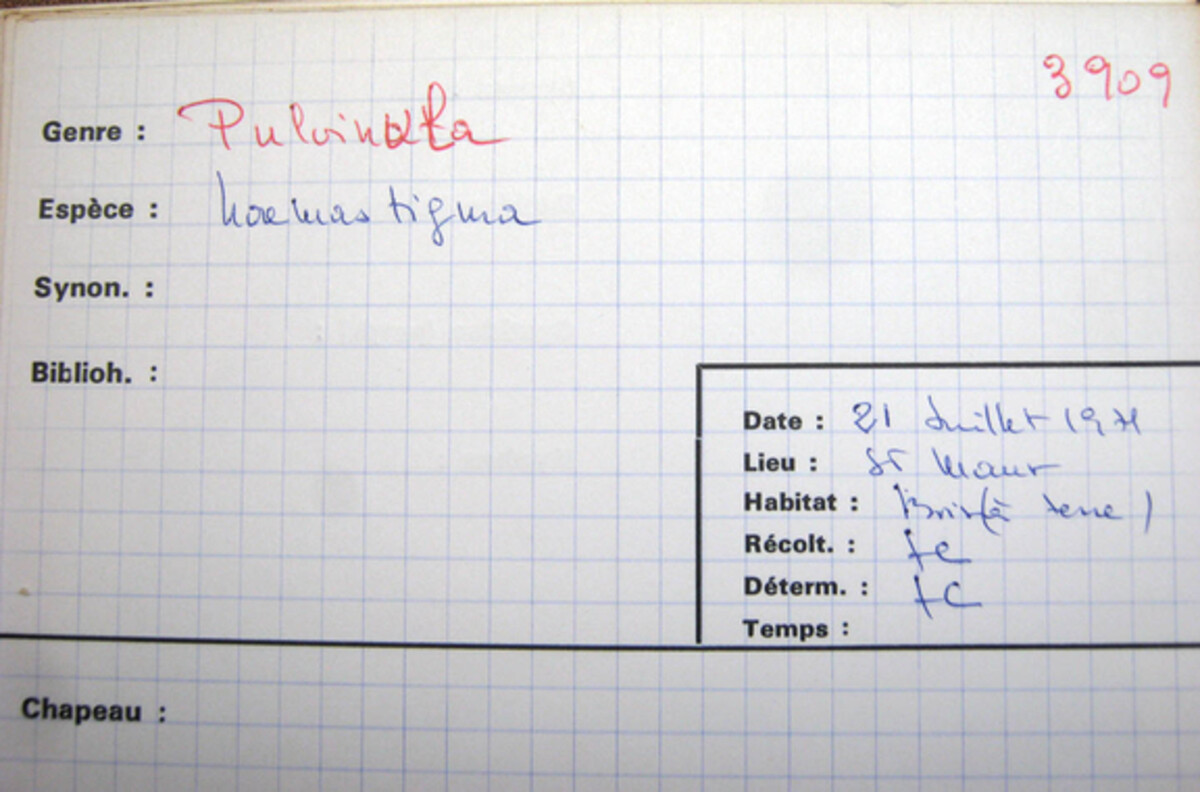 3909
Genre : Pulvinata
Espèce : haemastigma
Synon. :
Biblioh. :
Date : 21 Juillet 1971
Lieu : St Maur
Habitat : (à terre)
Récolt. : FC
Déterm. : FC
Temps :
Chapeau :